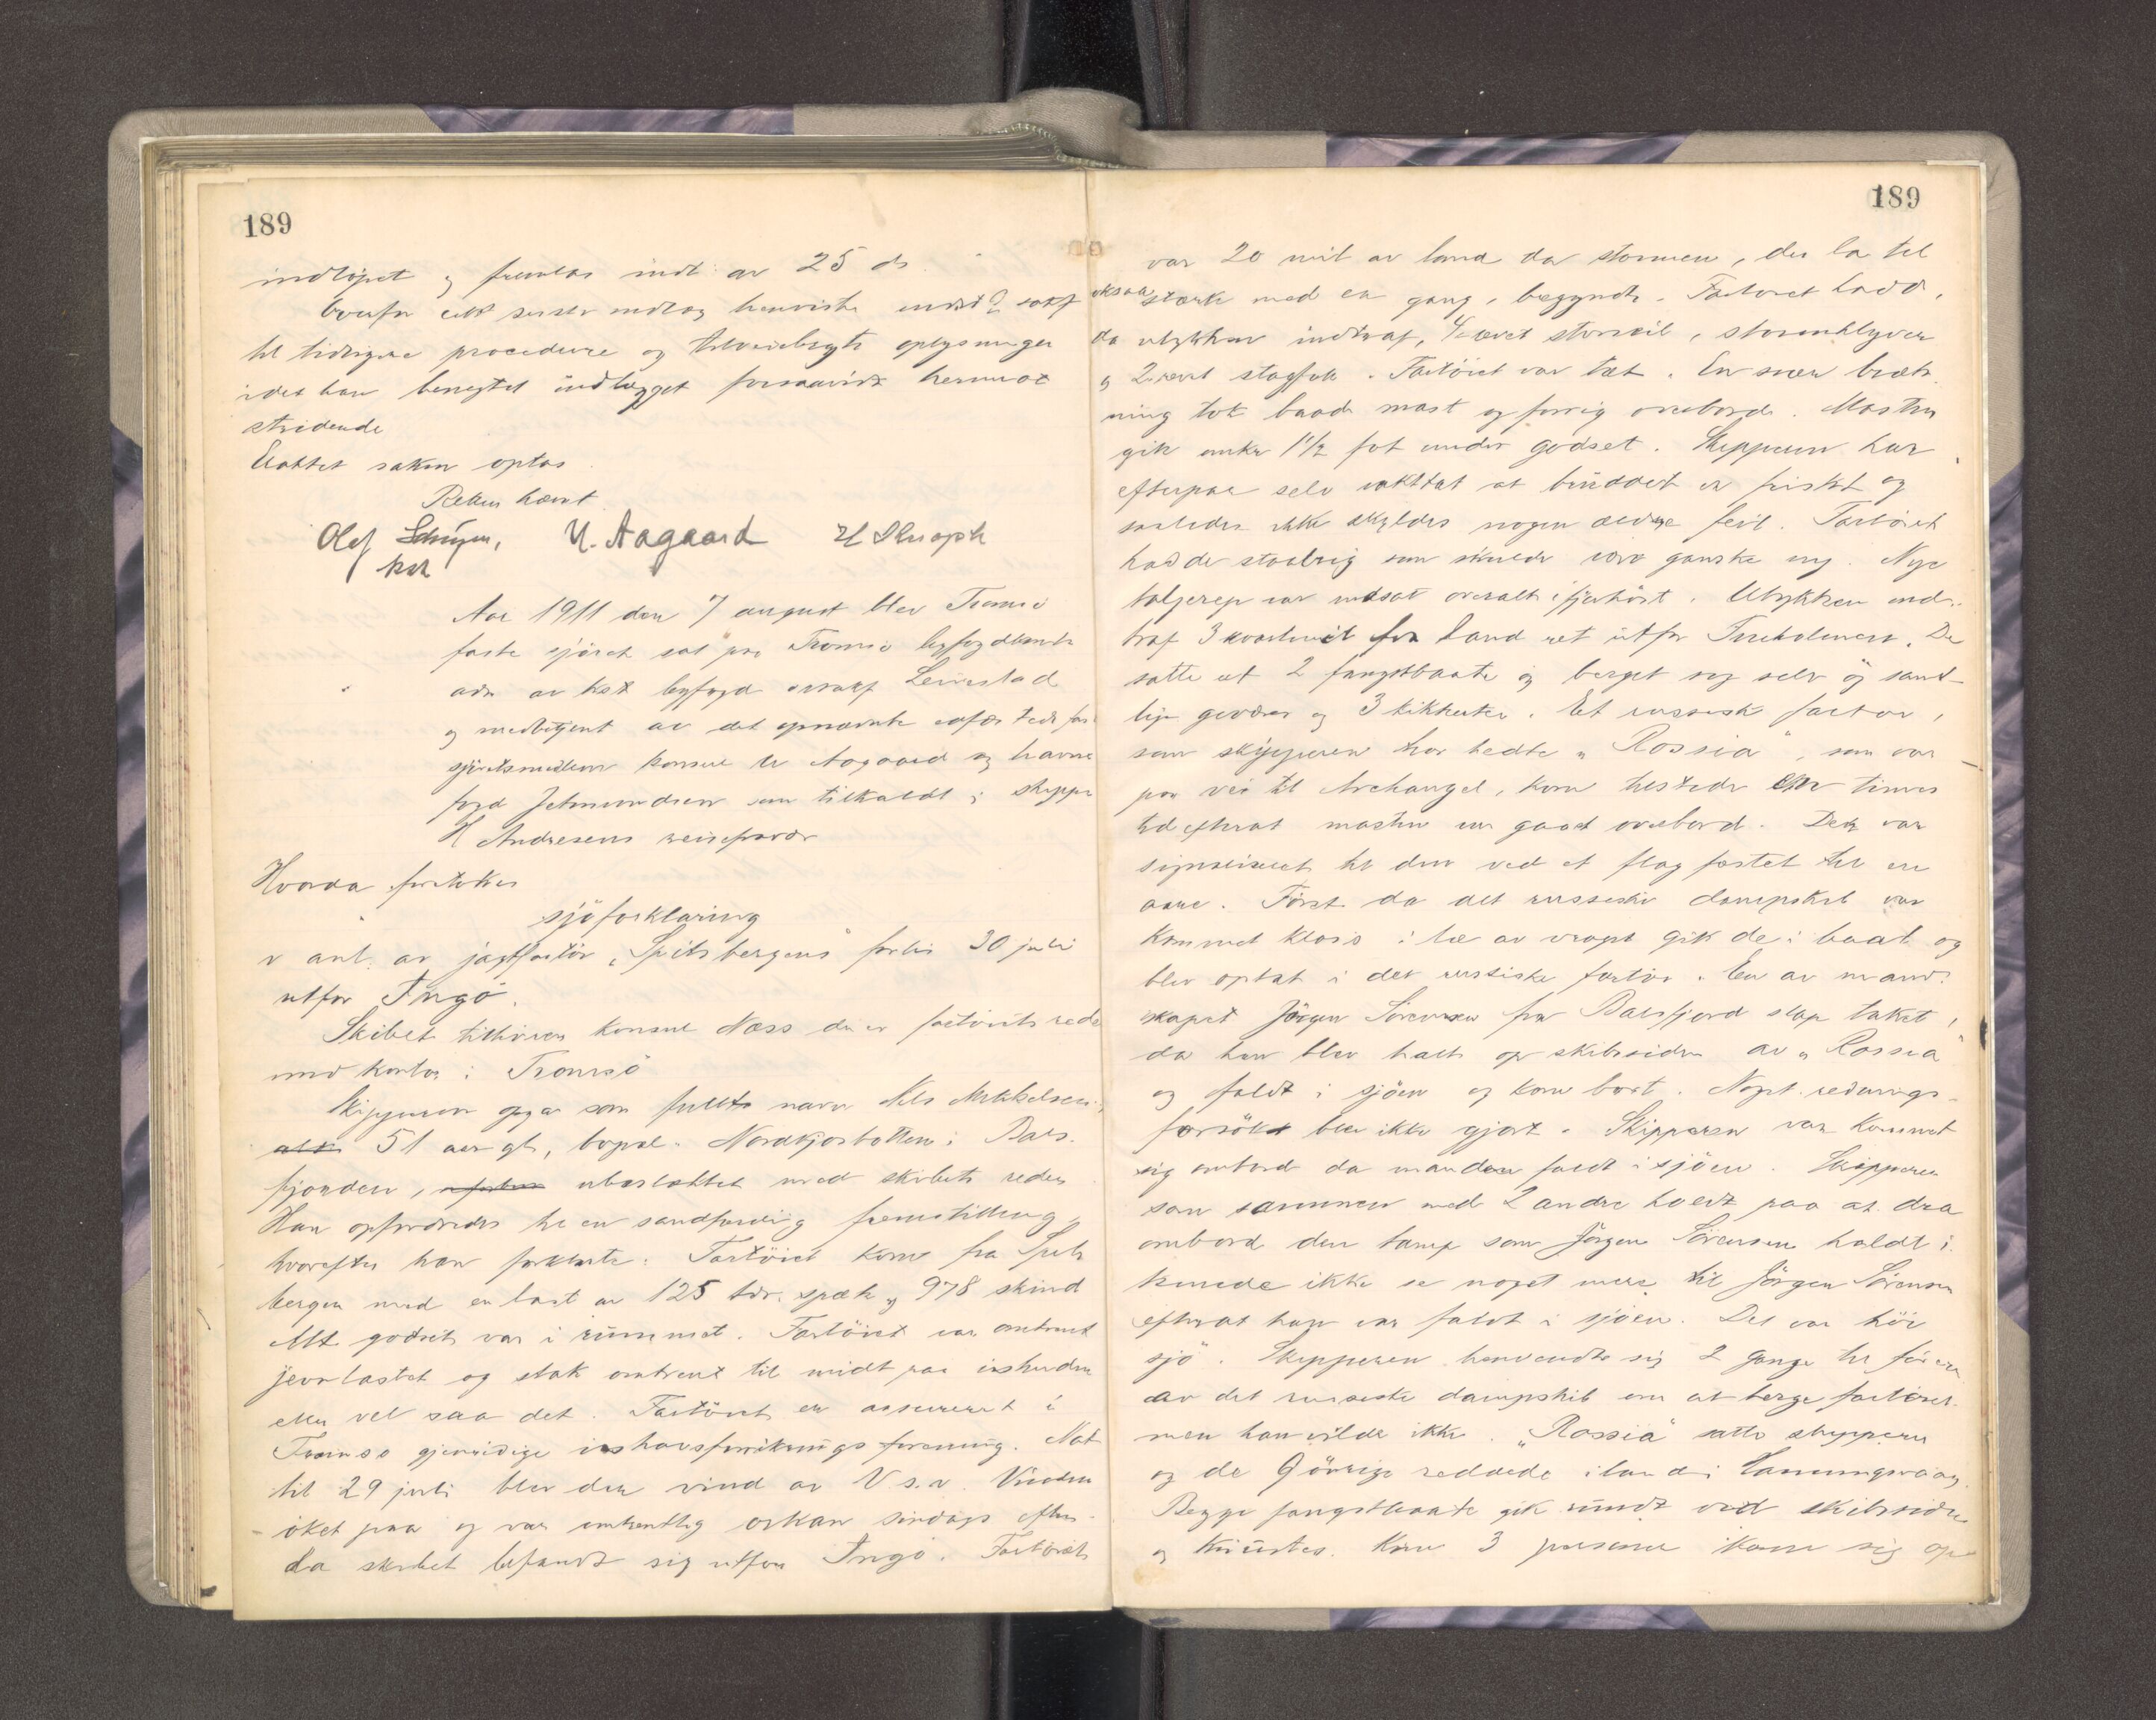 189
indløpet og fremlas indl. av 25 ds.
til tidligere procedure og tilveiebragte oplysninger
idet han benegtet indlægget forsaavidt hermot
stridende
Eoktet saken optas
Retten hævet
Olef U. Aagaard H Knoph
Aar 1911 den 7 august blev Tromsø
faste sjøret sat paa Tromsø byfogdkontor
adm av kst byfogd Leivestad
og medbetjent av det opnævnte faste
sjøretsmedlem konsul U Aagaard og havne
fogd som tilkaldt i skipper
H Andresens reisefravær
Hvorda foretokes
sjøforklaring
i anl. av jagtfartøi „Spitsbergens" forlis 30 juli
utfor Ingø.
Skibet tilhører konsul Næss der er fartøiets reder
med kontor i Tromsø
Skipperen opga som fulde navn Nils Mikkelsen
51 aar gl, bopæl: Nordkjosbotten i Bals-
fjorden, ubeslektet med skibets reder
Han opfordredes til en sandfærdig fremstilling,
hvorefter han forklarte: Fartøiet kom fra Spits
bergen med en last av 125 tdr. spæk og 978 skind
Alt godset var i rummet. Fartøiet var omtrent
jevnlastet og stak omtrent til midt paa ishuden
eller vel saa det. Fartøiet er assurert i
Tromsø gjensidige ishavsforsikringsforening. Nat
til 29 juli blev den vind av V s.v. Vinden
øket paa og var omtrentlig orkan søndags efterm.
da skibet befandt sig utfor Ingø. Fartøiet
189
var 20 mil av land da stormen, der la til
oksaa stærk med en gang, begyndte. Fartøiet hadde,
da ulykken indtraf, revet storseil, stormklyver
og 2 revet stagfok. Fartøiet var tæt. En svær bræk-
ning tok baade mast og forrig overbord. Masten
gik omkr 1½ fot under godset. Skipperen har
efterpaa selv iakttat at bruddet er friskt og
saaledes ikke skyldes nogen ældre feil. Fartøiet
hadde staalrig som skulde være ganske ny. Nye
taljerep var indsat overalt ifjorhøst. Ulykken ind-
traf 3 kvartmil fra land ret utfor Fruholmen. De
satte ut 2 fangstbaater og berget sig selv og samt-
lige geværer og 3 kikkerter. Et russisk fartøi,
som skipperen tror hedte „Rossia", som var
paa vei til Archangel, kom tilstede en times
tid efterat masten var gaat overbord. Der var
signaliseret til den ved et flag fæstet til en
aare. Først da det russiske dampskib var
kommet klods i læ av vraget gik de i baat og
blev optat i det russiske fartøi. En av mand-
skapet Jörgen Sörensen fra Balsfjord slap taket,
da han blev halt op skibssiden av „Rossia"
og faldt i sjøen og kom bort. Noget rednings-
forsøk blev ikke gjort. Skipperen var kommet
sig ombord da manden faldt i sjøen. Skipperen
som sammen med 2 andre holdt paa at dra
ombord den tamp som Jörgen Sörensen holdt i
kunde ikke se noget mere til Jörgen Sörensen
efterat han var faldt i sjøen. Det var høi
sjø. Skipperen henvendte sig 2 gange til føreren
av det russiske dampskib om at berge fartøiet
men han vilde ikke. „Rossia" satte skipperen
og de 9 øvrige reddede iland i Honningsvaag.
Begge fangstbaate gik rundt ved skibssiden
og knustes. Kun 3 personer kom sig op